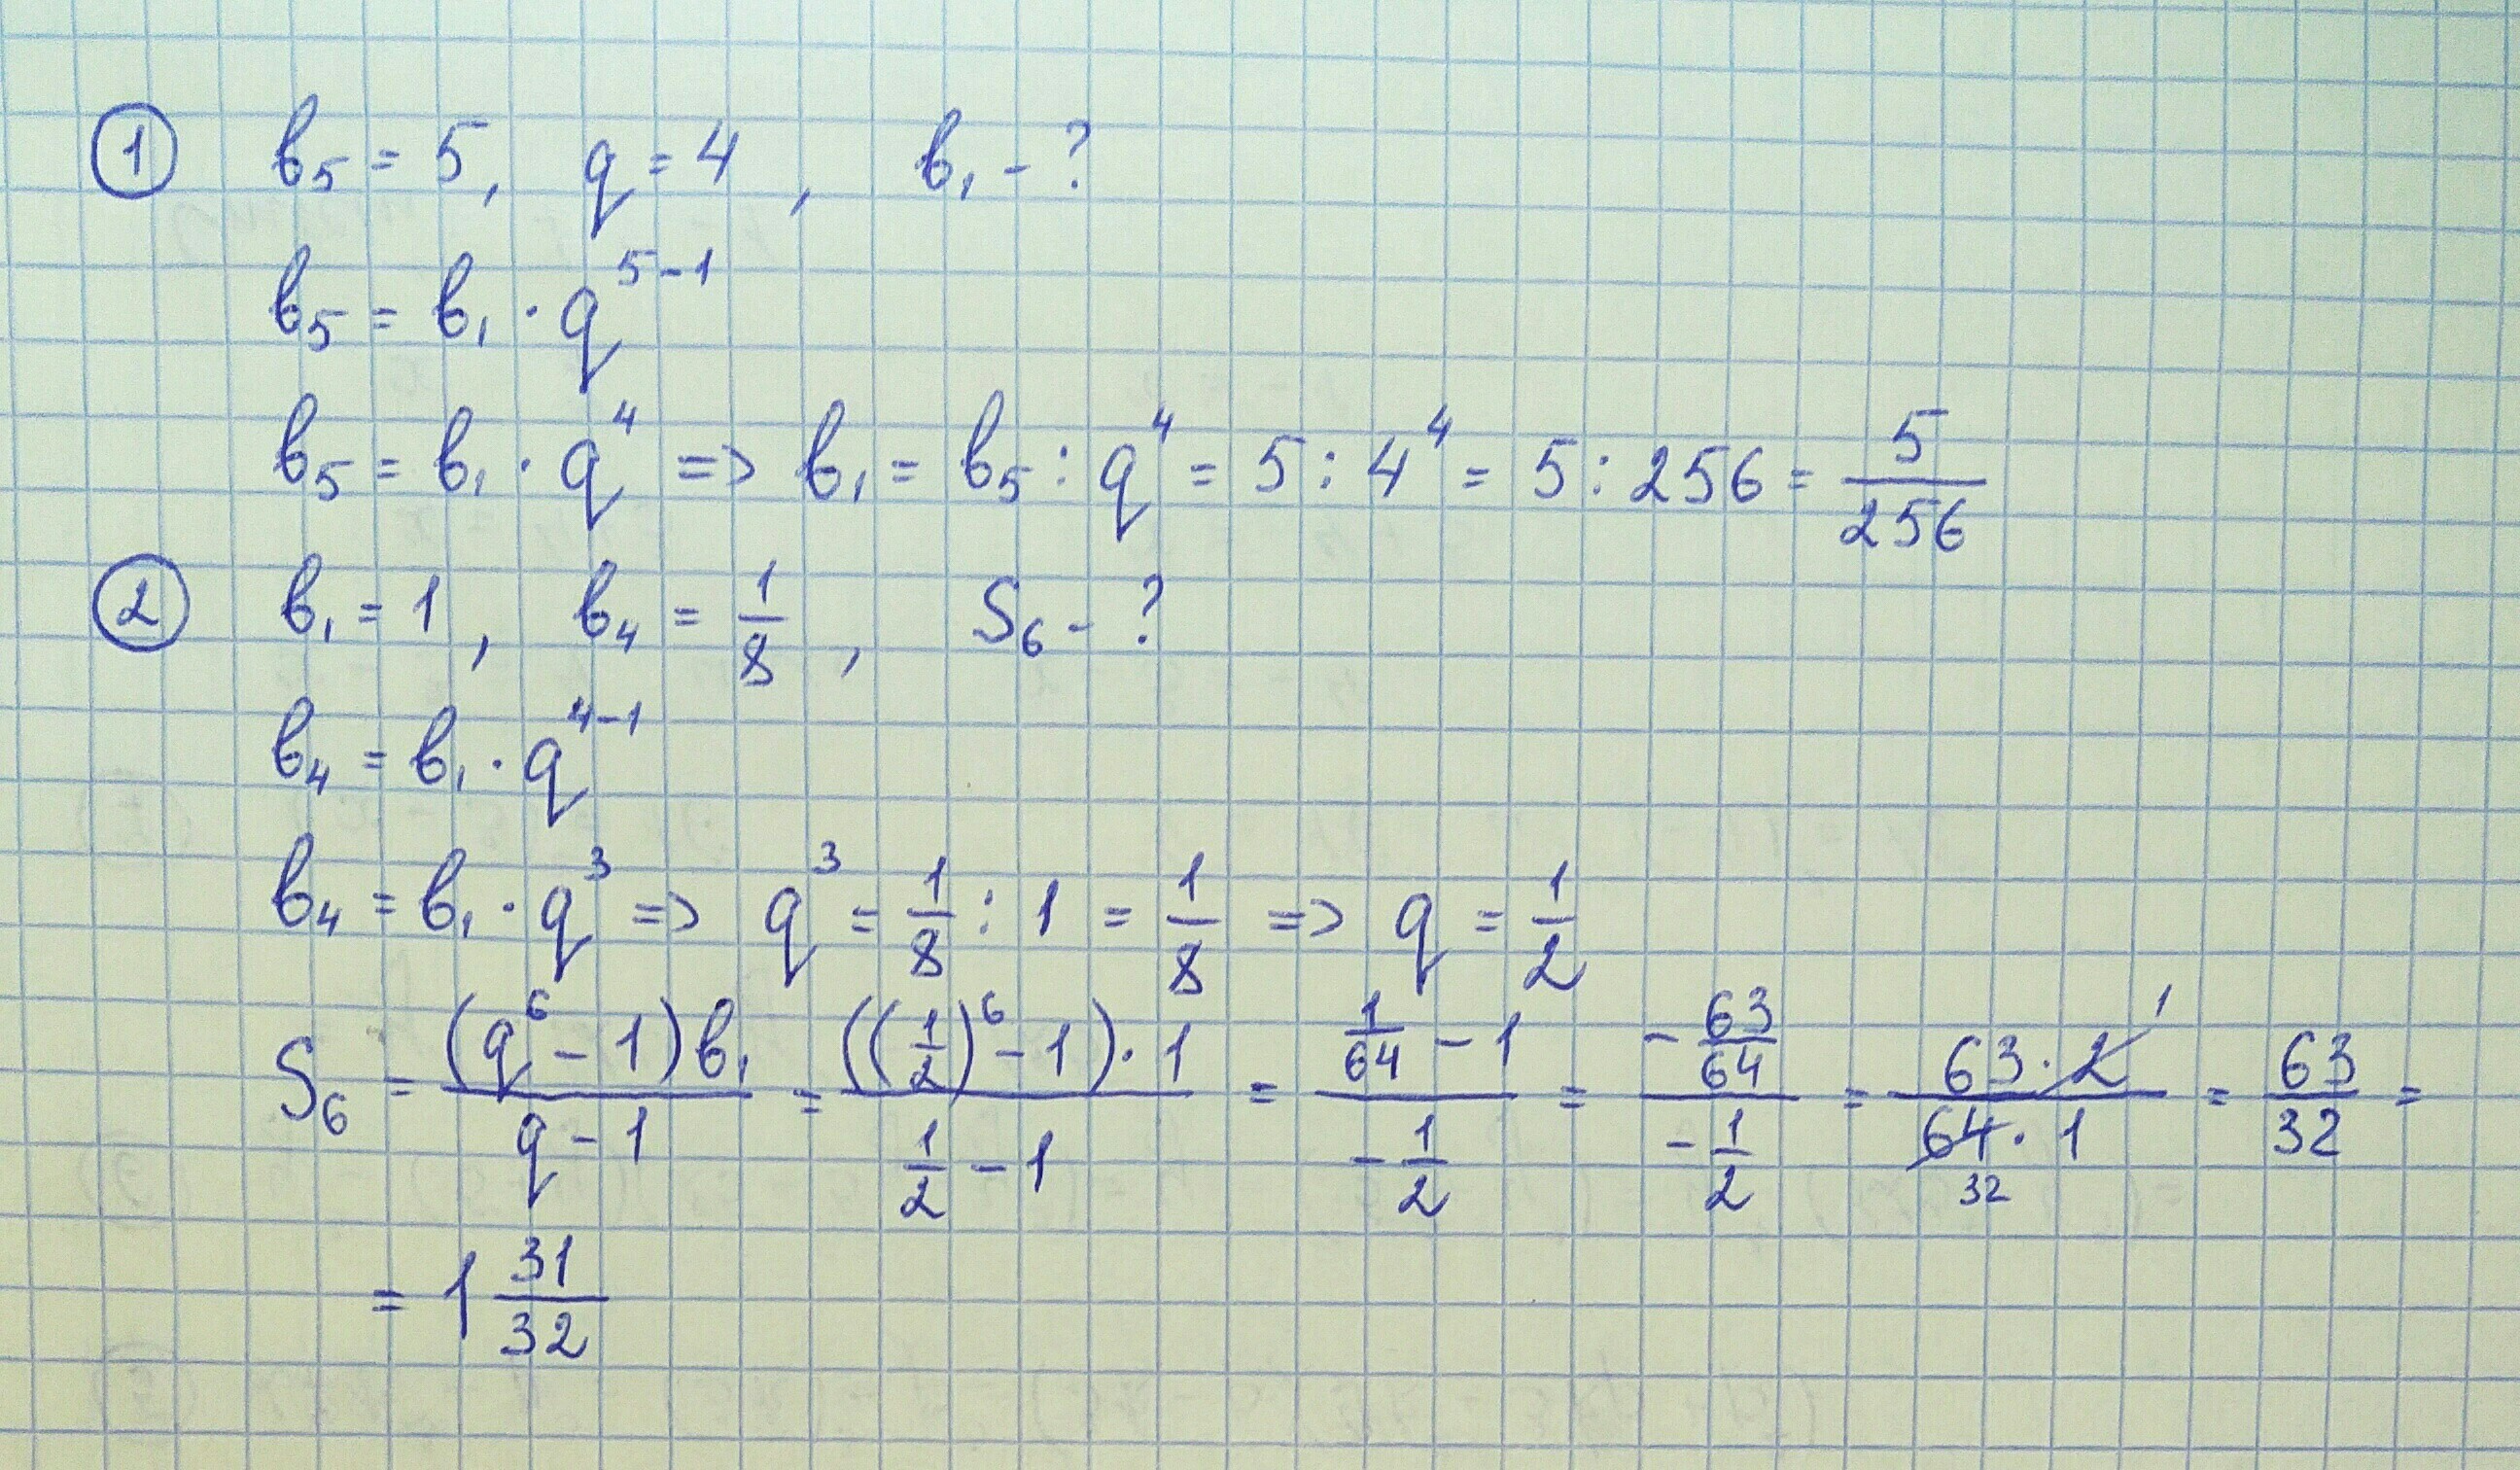 ① b₅ = 5, q = 4, b₁ - ?
b₅ = b₁ · q⁵⁻¹
b₅ = b₁ · q⁴ => b₁ = b₅ : q⁴ = 5 : 4⁴ = 5 : 256 = 5/256
② b₁ = 1, b₄ = 1/8, S₆ - ?
b₄ = b₁ · q⁴⁻¹
b₄ = b₁ · q³ => q³ = 1/8 : 1 = 1/8 => q = 1/2
S₆ = (q⁶ - 1)b₁ / (q - 1) = ((1/2)⁶ - 1) · 1 / (1/2 - 1) = (1/64 - 1) / (-1/2) = (-63/64) / (-1/2) = 63 · 2 1 / 64 · 1 32 = 63/32 =
= 1 31/32